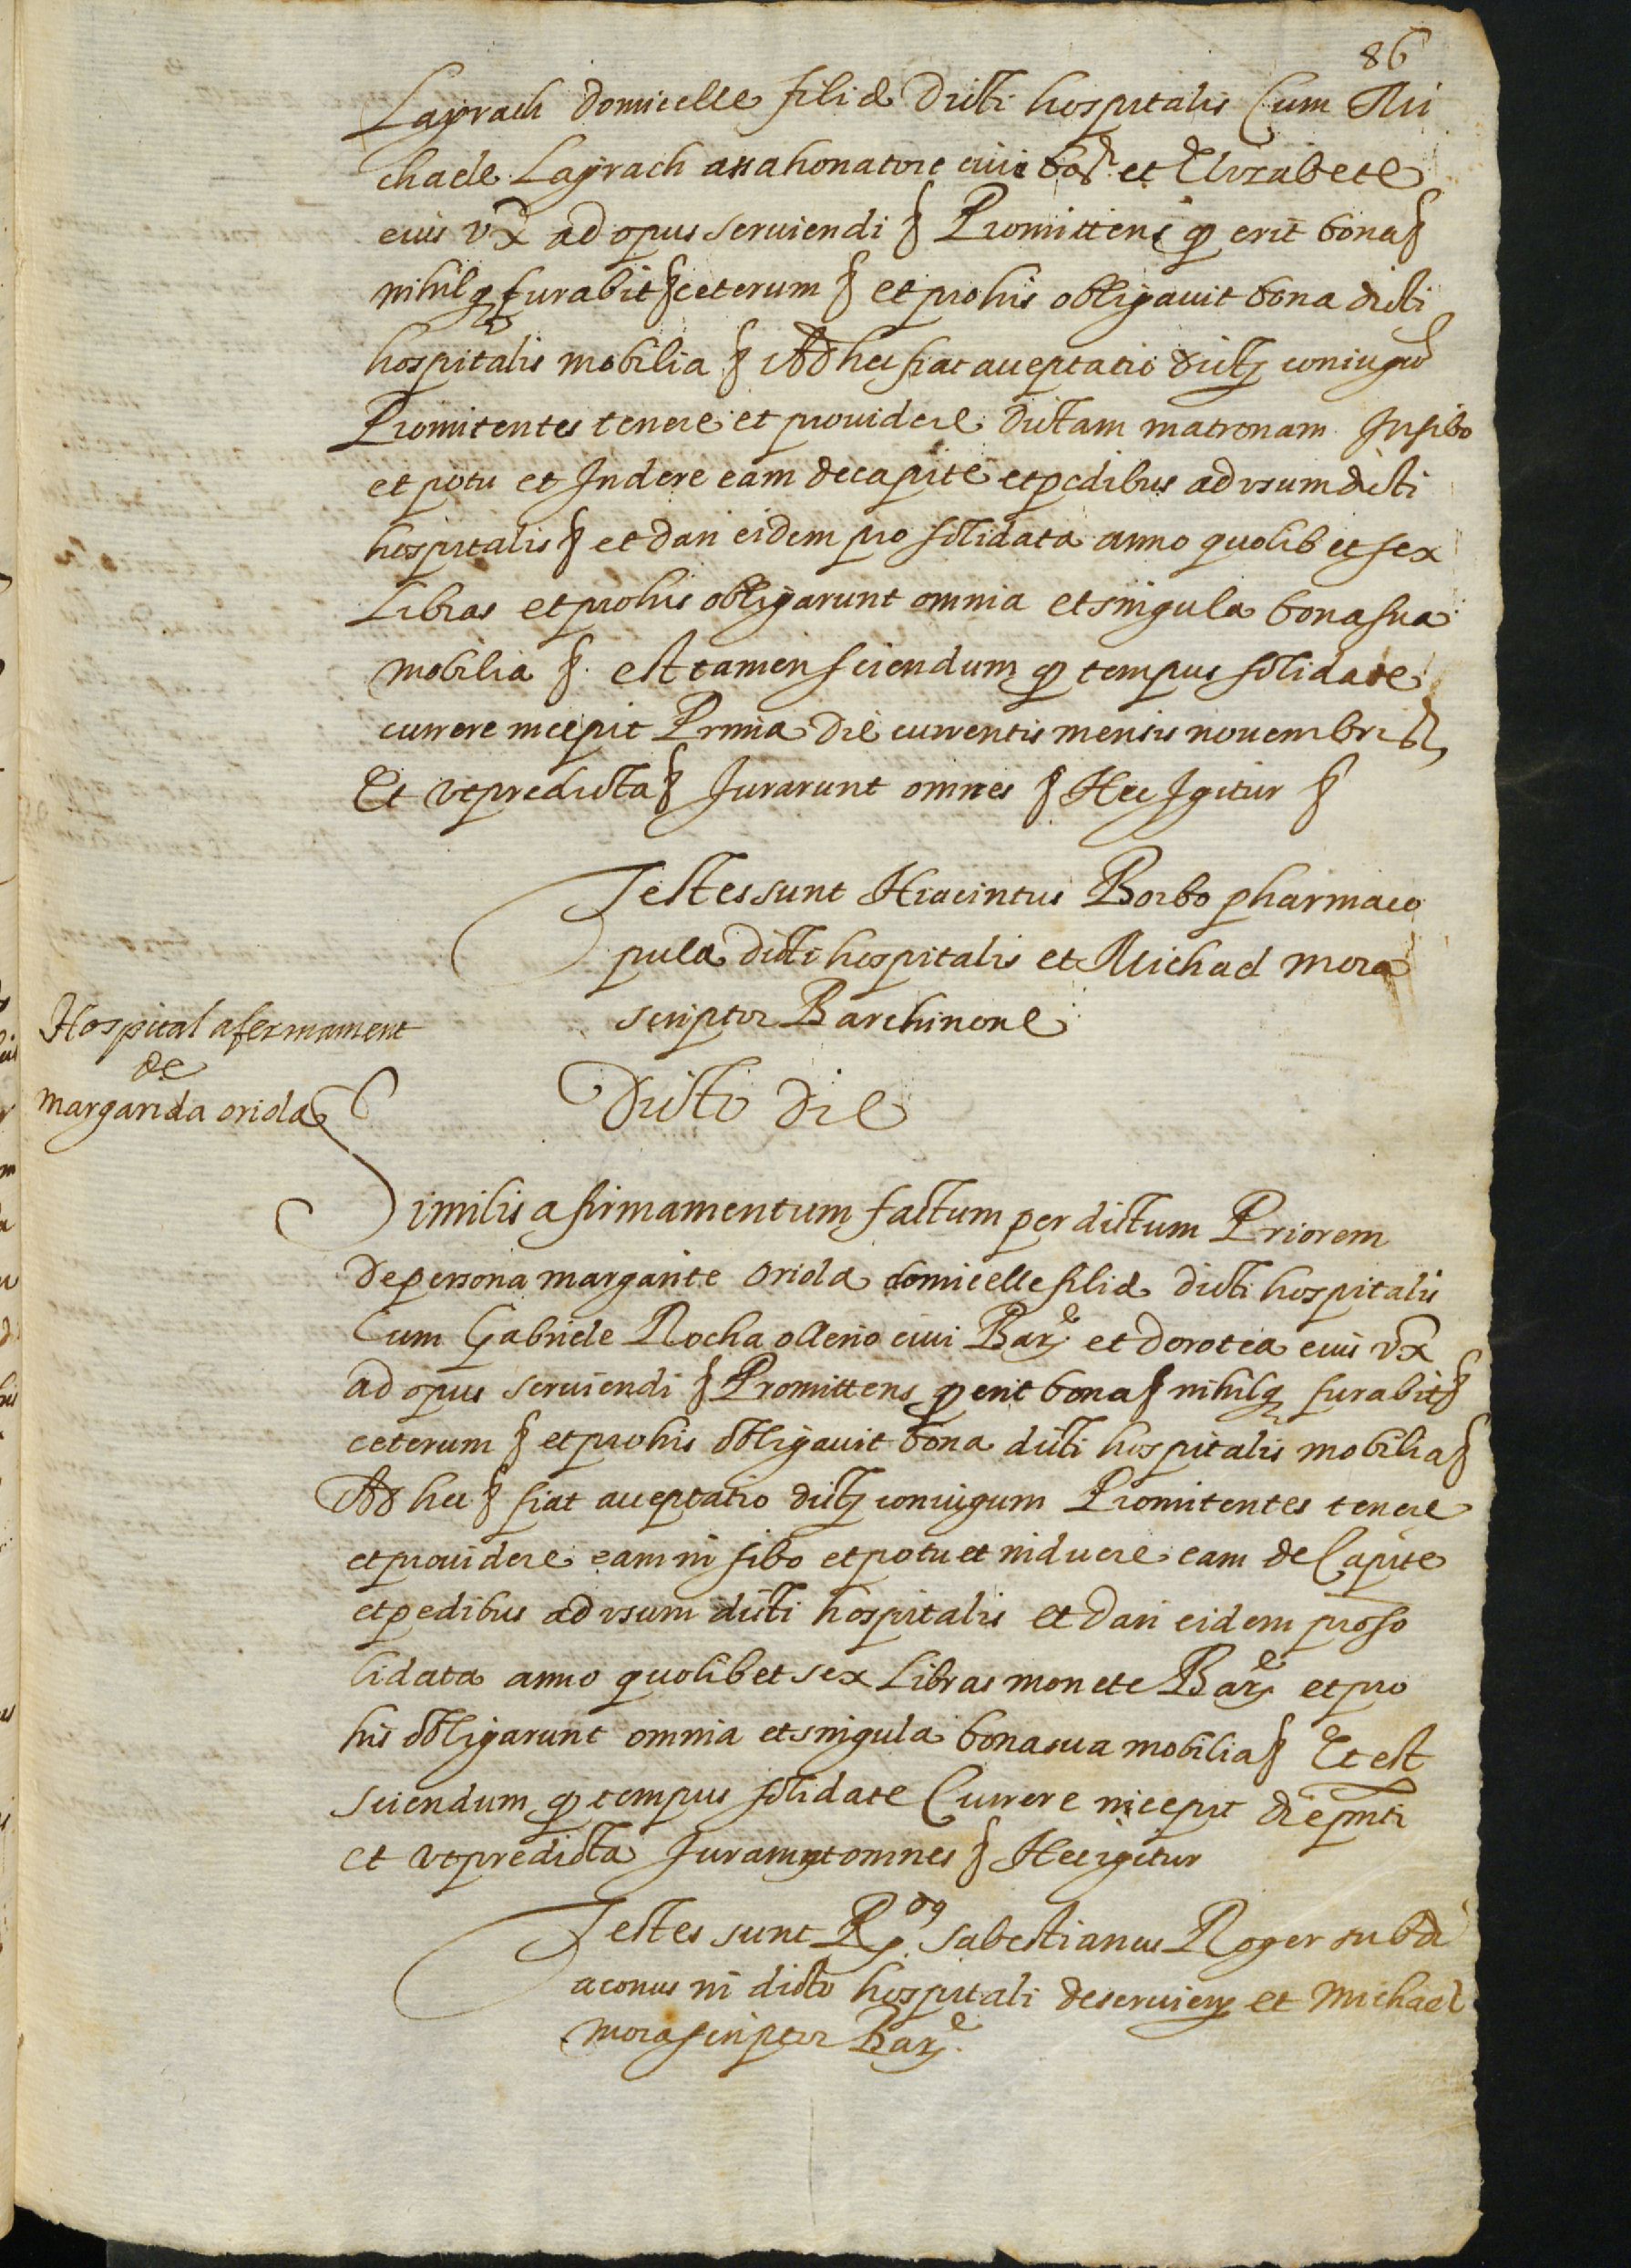 86
Layrach domicelle filie dicti hospitalis Cum Mi
chaele Layrach assahonatore cive bar. et Elizabete
eius vx ad opus serviendi § Promittens q erit bona §
nihilq furabit § ceterum § et pro his obligavit bona dicti
hospitalis mobilia § Ad hec fiat acceptatio dictz coniugu
Promitentes tenere et providere dictam matronam In sibo
et potu et Indere eam de capite et pedibus ad vsum dicti
hospitalis § et dari eidem pro solidata anno quolibet sex
Libras et pro his obligarunt omnia et singula bona sua
mobilia §. est tamen sciendum q tempus solidate
currere incepit Prima die currentis mensis novembris
Et vt predicta § Jurarunt omnes § Hec Igitur §
Testes sunt Hiacintus Borbo pharmaco
pula dicti hospitalis et Michael mora
scriptor Barchinone
Hospital afermament
de
margarida oriola
Dicto die
Similis afirmamentum factum per dictum Priorem
de persona margarite oriola domicelle filie dicti hospitalis
Cum Gabriele Rocha ollerio civi Barz e et dorotea eius vx
ad opus serviendi § Promittens q erit bona § nihilq furabit §
ceterum § et pro his obligavit bona dicti hospitalis mobilia §
Ad hec § fiat acceptatio dictz coniugum Promitentes tenere
et providere eam in sibo et potu et induere eam de Capite
et pedibus ad vsum dicti hospitalis et dari eidem pro so
lidata anno quolibet sex Libras monete Barz e et pro
his obligarunt omnia et singula bona sua mobilia § Et est
sciendum q tempus solidate Currere incepit die pnti
et vt predicta Jurarunt omnes § Hec igitur
Testes sunt R. dg sabestianus Roger subdi
aconus in dicto hospitali deserviens et Michael
mora scriptor Barz e.